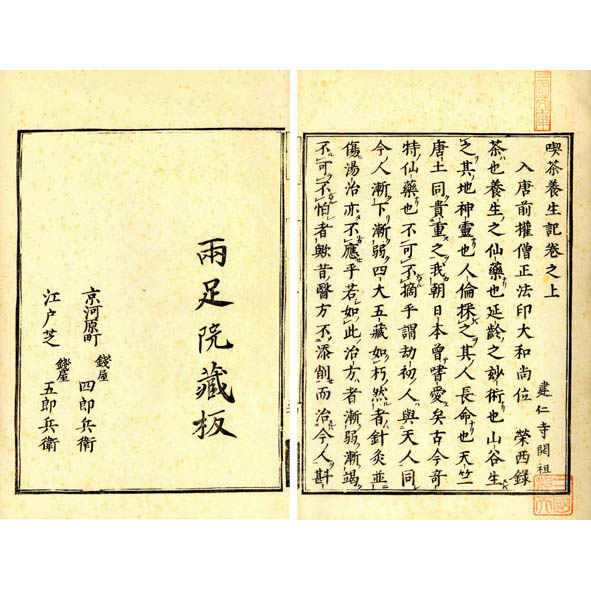 喫茶養生記卷之上
建仁寺開祖
入唐前權僧正法印大和尚位 榮西錄
茶也養生之仙藥也延齡之玅術也山谷生
之其地神靈也人倫採之其人長命也天竺
唐土同貴重之我朝日本曾嗜愛矣古今奇
特仙藥也不可不摘乎謂劫初人與天人同
今人漸下漸弱四大五藏如朽然者針灸並
傷湯治亦不應乎若如此治方者漸弱漸竭
不可不怕者歟昔醫方不添削而治今人斟
兩足院藏板
京河原町 錢屋 四郎兵衛
江戸芝 錢屋 五郎兵衛